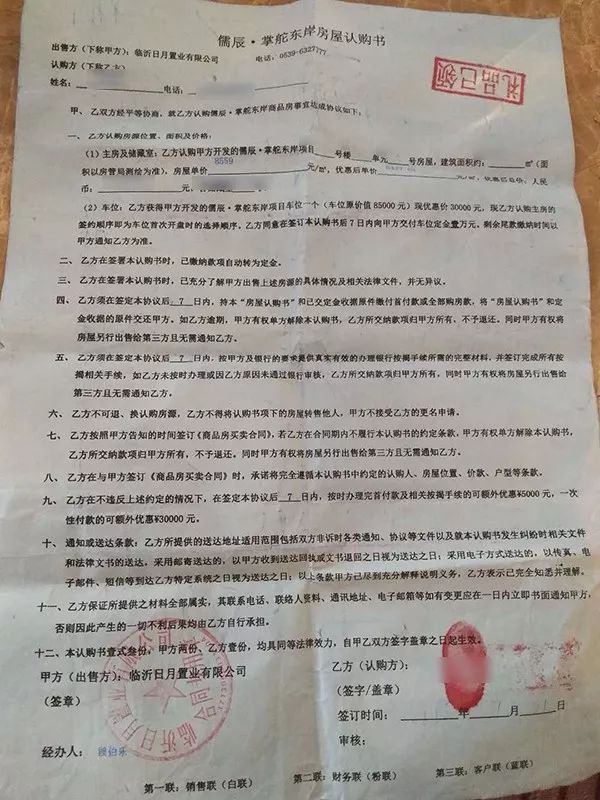 儒辰·掌舵东岸房屋认购书
出售方（下称甲方）：临沂日月置业有限公司 电话：0539-6327777
认购方（下称乙方）
姓名： 电话：
礼品已领
甲、乙双方经平等协商，就乙方认购儒辰·掌舵东岸商品房事宜达成协议如下：
一、乙方认购房源位置、面积及价格：
（1）主房及储藏室：乙方认购甲方开发的儒辰·掌舵东岸项目 号楼 单元 号房屋，建筑面积约： ㎡（面
积以房管局测绘为准），房屋单价 8559 元/㎡，优惠后单价 元/㎡，优惠后总价，人民
币： 元，
（2）车位：乙方获得甲方开发的儒辰·掌舵东岸项目车位一个（车位原价值 85000 元）现优惠价 30000 元，现乙方认购主房的
签约顺序即为车位首次开盘时的选择顺序。乙方同意在签订本认购书后 7 日内向甲方交付车位定金壹万元，剩余尾款缴纳时间以
甲方通知乙方为准。
二、乙方在签署本认购书时，已缴纳款项自动转为定金。
三、乙方在签署本认购书时，已充分了解甲方出售上述房源的具体情况及相关法律文件，并无异议。
四、乙方须在签定本协议后 7 日内，持本“房屋认购书”和已交定金收据原件缴付首付款或全部购房款，将“房屋认购书”和定
金收据的原件交还甲方。如乙方逾期，甲方有权单方解除本认购书，乙方所交纳款项归甲方所有、不予退还。同时甲方有权将
房屋另行出售给第三方且无需通知乙方。
五、乙方须在签定本协议后 7 日内，按甲方及银行的要求提供真实有效的办理银行按揭手续所需的完整材料，并签订完成所有按
揭相关手续，如乙方未按时办理或因乙方原因未通过银行审核，乙方所交纳款项归甲方所有，同时甲方有权将房屋另行出售给
第三方且无需通知乙方。
六、乙方不可退、换认购房源，乙方不得将认购书项下的房屋转售他人，甲方不接受乙方的更名申请。
七、乙方按照甲方告知的时间签订《商品房买卖合同》，若乙方在合同期内不履行本认购书的约定条款，甲方有权单方解除本认购书，
乙方所交纳款项归甲方所有，不予退还。同时甲方有权将房屋另行出售给第三方且无需通知乙方。
八、乙方在与甲方签订《商品房买卖合同》时，承诺将完全遵循本认购书中约定的认购人、房屋位置、价款、户型等条款。
九、乙方在不违反上述约定的情况下，在签定本协议后 7 日内，按时办理完首付款及相关按揭手续的可额外优惠¥5000 元，一次
性付款的可额外优惠¥30000 元。
十、通知或送达条款：乙方所提供的送达地址适用范围包括双方非诉时各类通知、协议等文件以及就本认购书发生纠纷时相关文件
和法律文书的送达，采用邮寄送达的，以甲方收到送达回执或文书退回之日视为送达之日；采用电子方式送达的，以传真、电
子邮件、短信等到达乙方特定系统之日视为送达之日；以上条款甲方已尽到充分解释说明义务，乙方表示已完全知悉并理解。
十一、乙方保证所提供之材料全部属实，其联系电话、联络人资料、通讯地址、电子邮箱等如有变更应在一日内立即书面通知甲方，
否则因此产生的一切不利后果均由乙方自行承担。
十二、本认购书壹式叁份，甲方两份、乙方壹份，均具同等法律效力，自甲乙双方签字盖章之日起生效。
甲方（出售方）：临沂日月置业有限公司 乙方（认购方）：
（签章） （签字/盖章）
临沂日月置业有限公司
合同专用章
签订时间： 年 月 日
审核：
经办人：段伯乐
第一联：销售联（白联） 第二联：财务联（粉联） 第三联：客户联（蓝联）